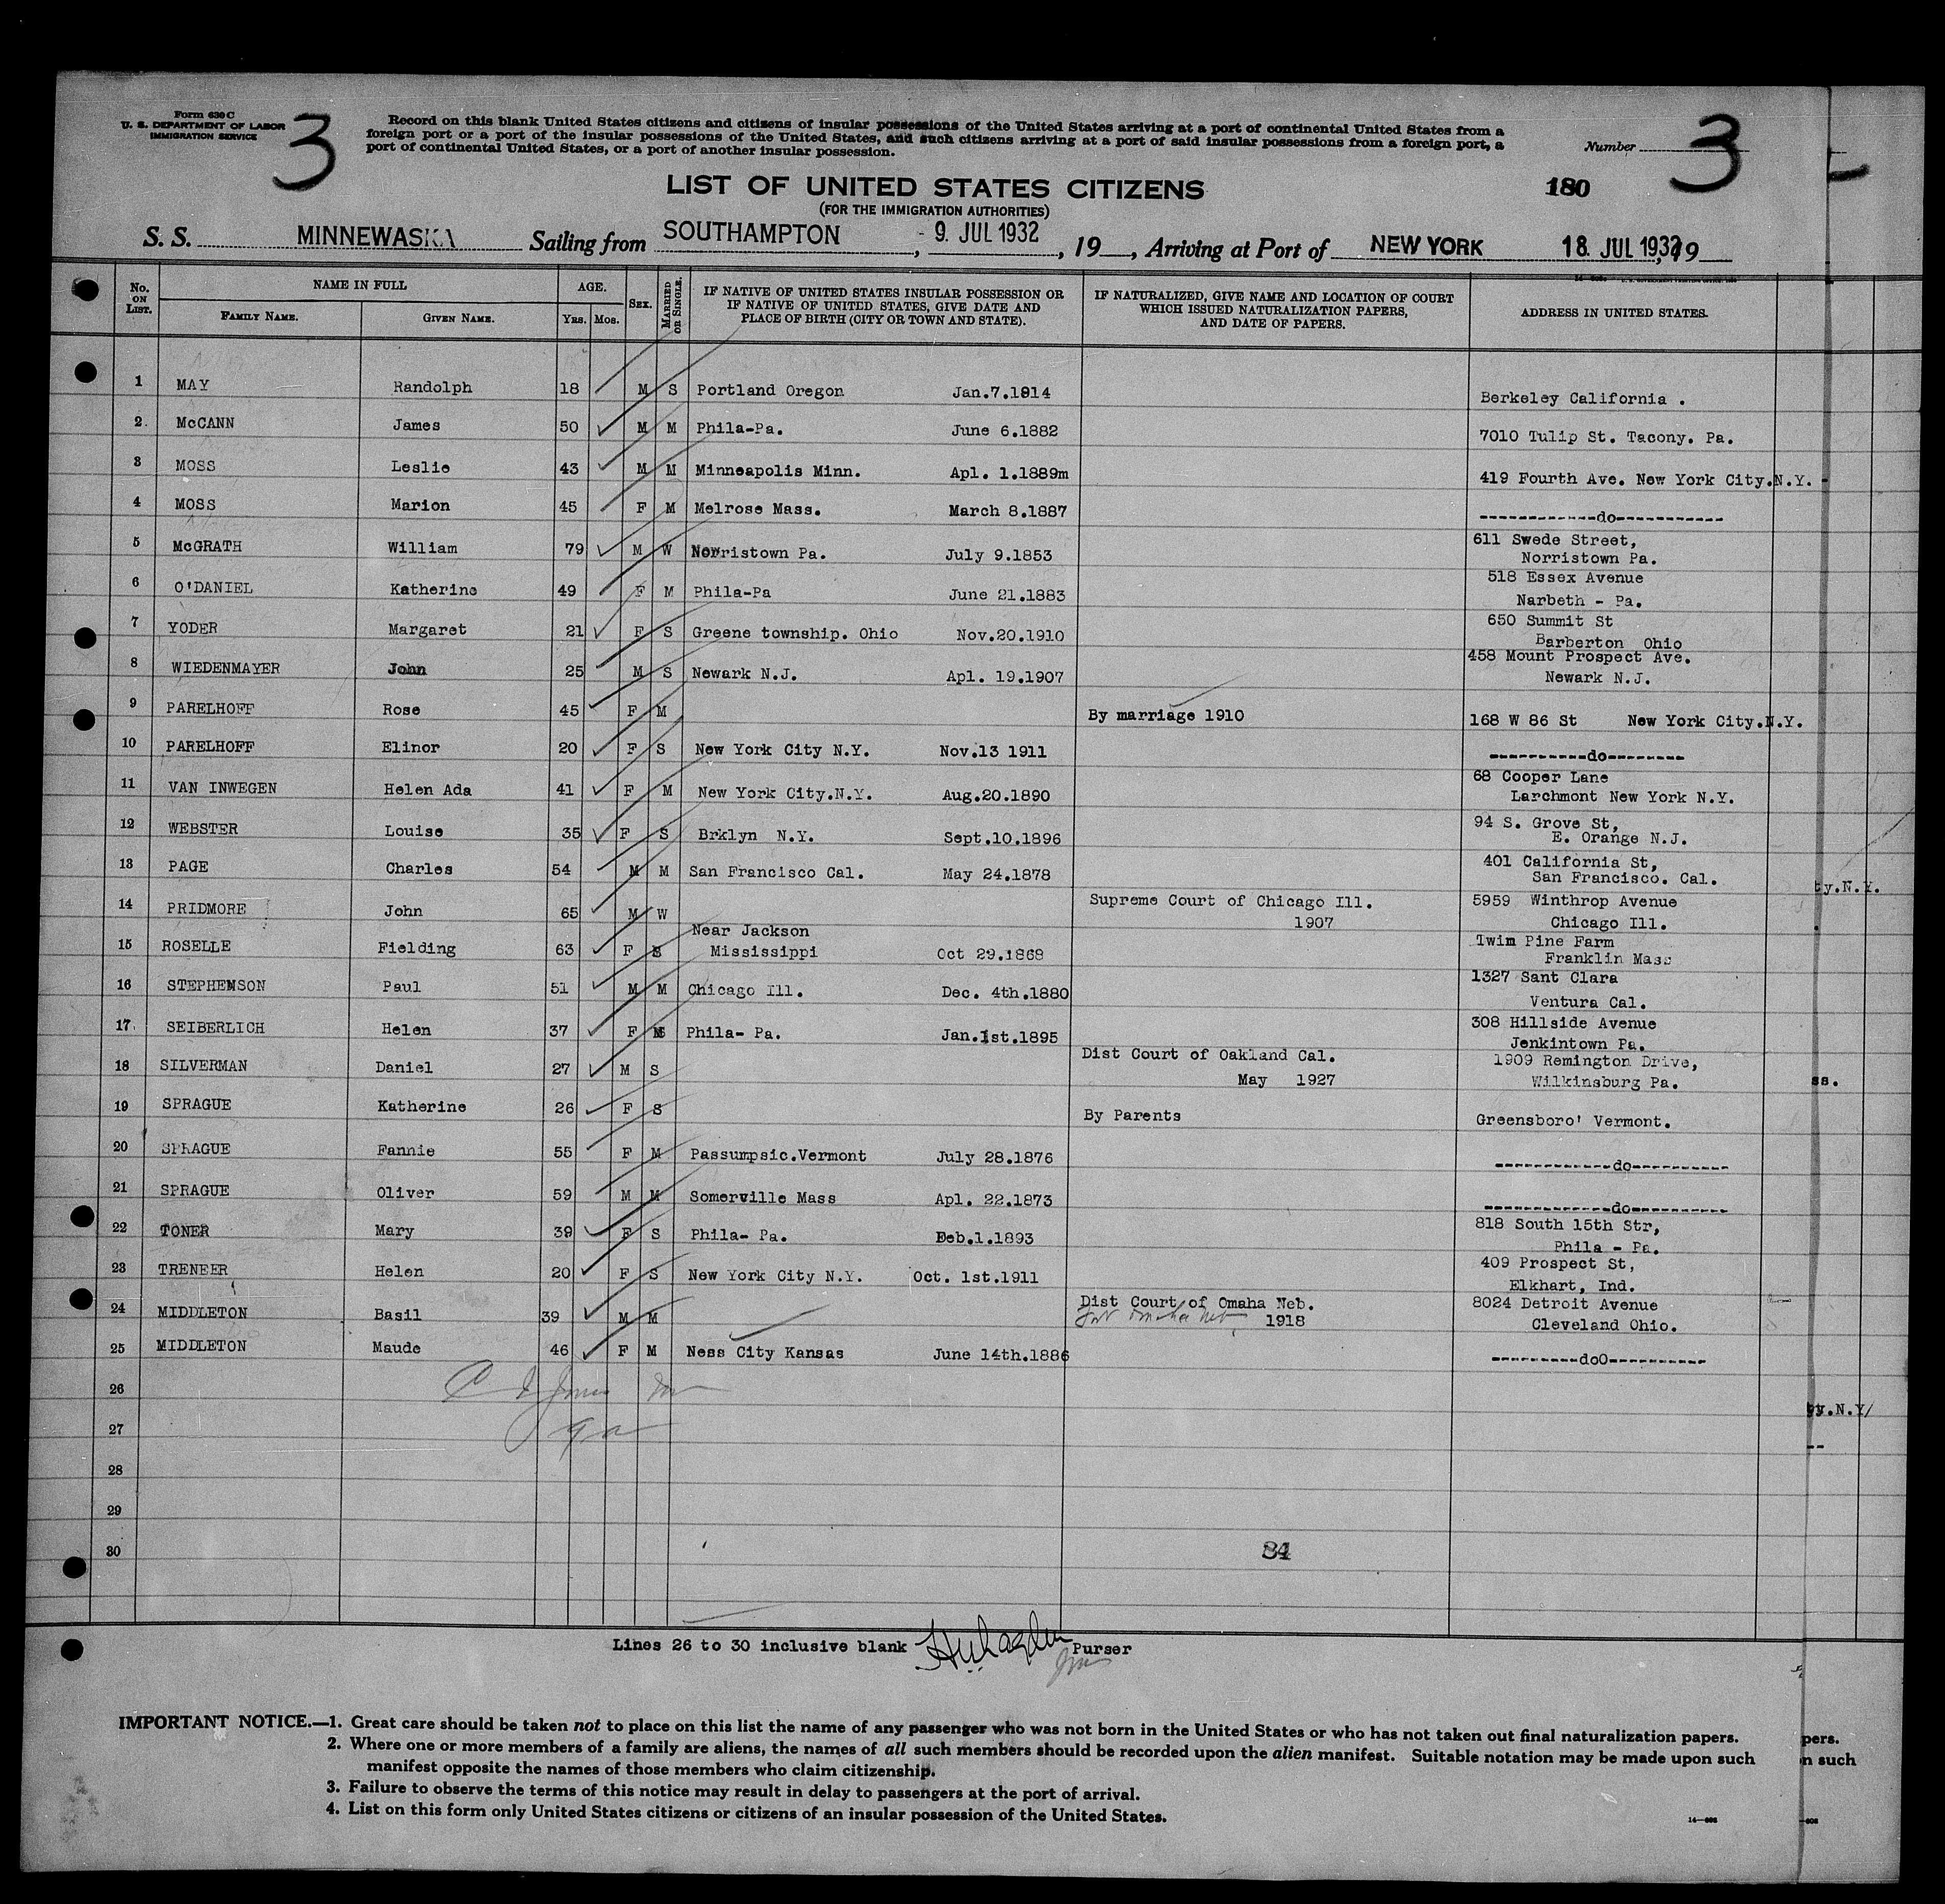 Form 630 C
U. S. DEPARTMENT OF LABOR
IMMIGRATION SERVICE
3
Record on this blank United States citizens and citizens of insular possessions of the United States arriving at a port of continental United States from a
foreign port or a port of the insular possessions of the United States, and such citizens arriving at a port of said insular possessions from a foreign port, a
port of continental United States, or a port of another insular possession.
Number 3
LIST OF UNITED STATES CITIZENS
180
(FOR THE IMMIGRATION AUTHORITIES)
S. S. MINNEWASKA Sailing from SOUTHAMPTON, - 9. JUL 1932, 19__, Arriving at Port of NEW YORK 18. JUL 1932, 19
No. ON LIST. NAME IN FULL AGE. SEX. MARRIED OR SINGLE. IF NATIVE OF UNITED STATES INSULAR POSSESSION OR IF NATIVE OF UNITED STATES, GIVE DATE AND PLACE OF BIRTH (CITY OR TOWN AND STATE). IF NATURALIZED, GIVE NAME AND LOCATION OF COURT WHICH ISSUED NATURALIZATION PAPERS, AND DATE OF PAPERS. ADDRESS IN UNITED STATES.
FAMILY NAME. GIVEN NAME. Yrs. Mos.
1 MAY Randolph 18 M S Portland Oregon Jan.7.1914 Berkeley California .
2. McCANN James 50 M M Phila-Pa. June 6.1882 7010 Tulip St. Tacony. Pa.
3 MOSS Leslie 43 M M Minneapolis Minn. Apl. 1.1889m 419 Fourth Ave. New York City.N.Y. -
4 MOSS Marion 45 F M Melrose Mass. March 8.1887 ------------do-----------
5 McGRATH William 79 M W Norristown Pa. July 9.1853 611 Swede Street,
Norristown Pa.
6 O'DANIEL Katherine 49 F M Phila-Pa June 21.1883 518 Essex Avenue
Narbeth - Pa.
7 YODER Margaret 21 F S Greene township. Ohio Nov.20.1910 650 Summit St
Barberton Ohio
8 WIEDENMAYER John 25 M S Newark N.J. Apl. 19.1907 458 Mount Prospect Ave.
Newark N.J.
9 PARELHOFF Rose 45 F M By marriage 1910 168 W 86 St New York City.N.Y.
10 PARELHOFF Elinor 20 F S New York City N.Y. Nov.13 1911 ----------do--------
11 VAN INWEGEN Helen Ada 41 F M New York City.N.Y. Aug.20.1890 68 Cooper Lane
Larchmont New York N.Y.
12 WEBSTER Louise 35 F S Brklyn N.Y. Sept.10.1896 94 S. Grove St,
E. Orange N.J.
13 PAGE Charles 54 M M San Francisco Cal. May 24.1878 401 California St,
San Francisco. Cal.
ty.N.Y.
14 PRIDMORE John 65 M W Supreme Court of Chicago Ill. 5959 Winthrop Avenue
1907 Chicago Ill.
Near Jackson
15 ROSELLE Fielding 63 F S Mississippi Oct 29.1868 Twin Pine Farm
Franklin Mass
16 STEPHENSON Paul 51 M M Chicago Ill. Dec. 4th.1880 1327 Sant Clara
Ventura Cal.
17. SEIBERLICH Helen 37 F S Phila- Pa. Jan.1st.1895 308 Hillside Avenue
Jenkintown Pa.
18 SILVERMAN Daniel 27 M S Dist Court of Oakland Cal. 1909 Remington Drive,
May 1927 Wilkinsburg Pa.
ss.
19 SPRAGUE Katherine 26 F S By Parents Greensboro' Vermont.
20 SPRAGUE Fannie 55 F M Passumpsic.Vermont July 28.1876 ------------do----------
21 SPRAGUE Oliver 59 M M Somerville Mass Apl. 22.1873 -------------do----------
22 TONER Mary 39 F S Phila- Pa. Feb.1.1893 818 South 15th Str,
Phila - Pa.
23 TRENEER Helen 20 F S New York City N.Y. Oct. 1st.1911 409 Prospect St,
Elkhart, Ind.
24 MIDDLETON Basil 39 M M Dist Court of Omaha Neb. 8024 Detroit Avenue
1918 Cleveland Ohio.
25 MIDDLETON Maude 46 F M Ness City Kansas June 14th.1886 ---------doO----------
26
y.N.Y/
27
--
28
29
30
84
Lines 26 to 30 inclusive blank Purser
IMPORTANT NOTICE.—1. Great care should be taken not to place on this list the name of any passenger who was not born in the United States or who has not taken out final naturalization papers.
pers.
2. Where one or more members of a family are aliens, the names of all such members should be recorded upon the alien manifest. Suitable notation may be made upon such
n such
manifest opposite the names of those members who claim citizenship.
3. Failure to observe the terms of this notice may result in delay to passengers at the port of arrival.
4. List on this form only United States citizens or citizens of an insular possession of the United States.